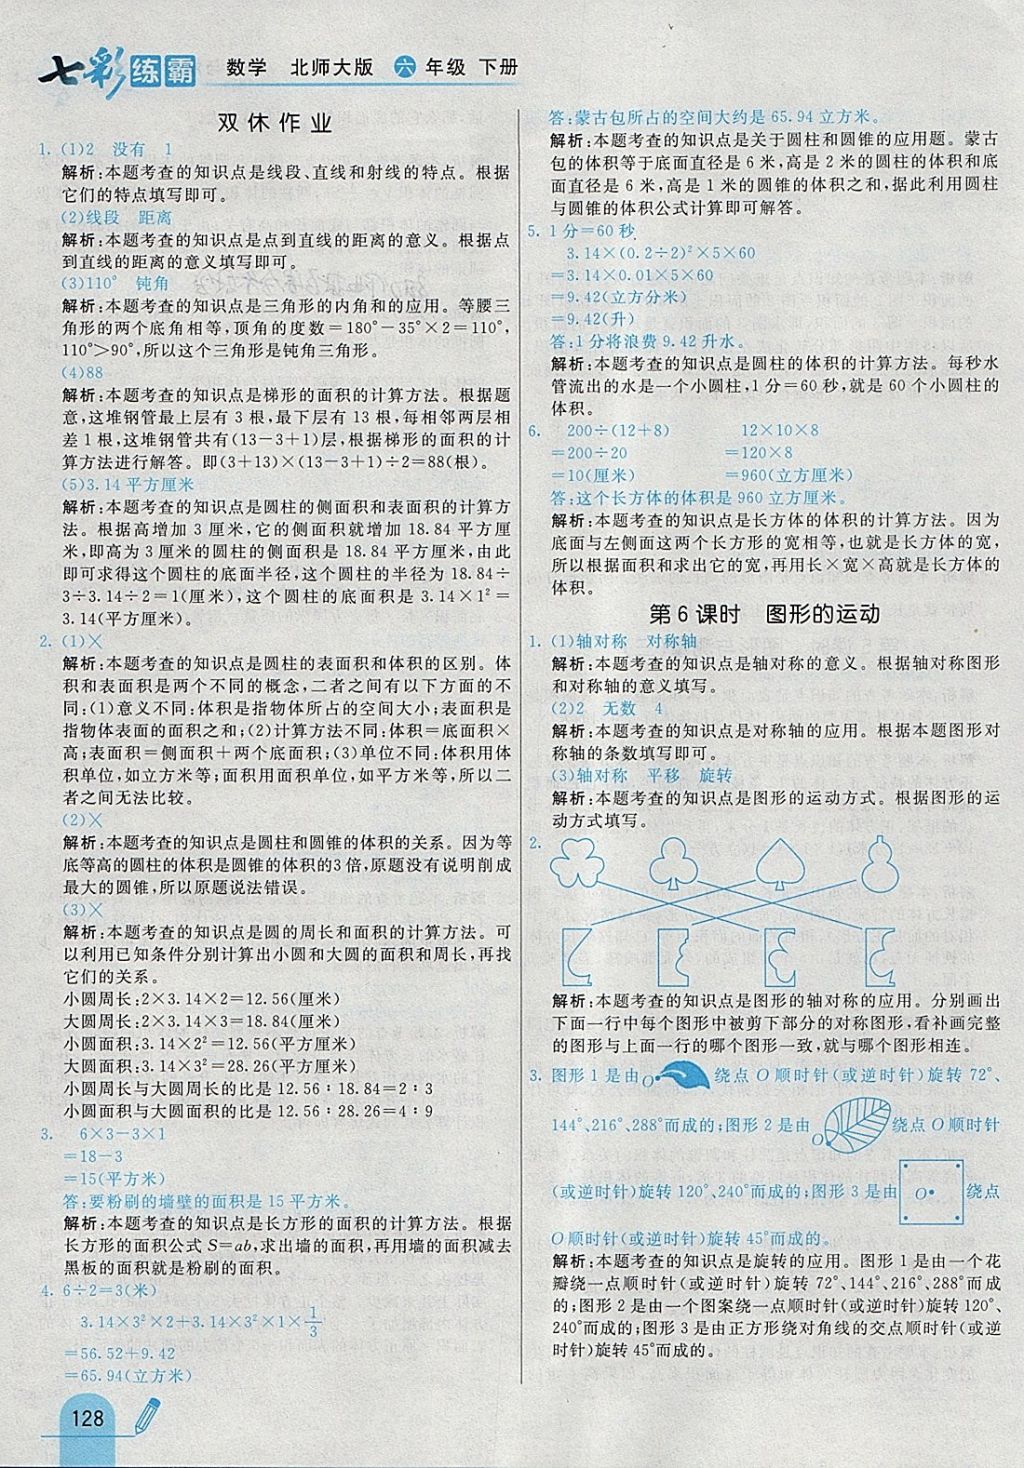 七彩练霸 数学 北师大版 六年级 下册
双休作业
1. (1)2 没有 1
解析:本题考查的知识点是线段、直线和射线的特点。根据
它们的特点填写即可。
(2)线段 距离
解析:本题考查的知识点是点到直线的距离的意义。根据点
到直线的距离的意义填写即可。
(3)110° 钝角
解析:本题考查的知识点是三角形的内角和的应用。等腰三
角形的两个底角相等,顶角的度数=180°-35°×2=110°,
110°>90°,所以这个三角形是钝角三角形。
(4)88
解析:本题考查的知识点是梯形的面积的计算方法。根据题
意,这堆钢管最上层有 3 根,最下层有 13 根,每相邻两层相
差 1 根,这堆钢管共有(13-3+1)层,根据梯形的面积的计
算方法进行解答。即(3+13)×(13-3+1)÷2=88(根)。
(5)3.14 平方厘米
解析:本题考查的知识点是圆柱的侧面积和表面积的计算方
法。根据高增加 3 厘米,它的侧面积就增加 18.84 平方厘
米,即高为 3 厘米的圆柱的侧面积是 18.84 平方厘米,由此
即可求得这个圆柱的底面半径,这个圆柱的半径为 18.84÷
3÷3.14÷2=1(厘米),这个圆柱的底面积是 3.14×1²=
3.14(平方厘米)。
2. (1)×
解析:本题考查的知识点是圆柱的表面积和体积的区别。体
积和表面积是两个不同的概念,二者之间有以下方面的不
同:(1)意义不同:体积是指物体所占的空间大小;表面积是
指物体表面的面积之和;(2)计算方法不同:体积=底面积×
高;表面积=侧面积+两个底面积;(3)单位不同:体积用体
积单位,如立方米等;面积用面积单位,如平方米等,所以二
者之间无法比较。
(2)×
解析:本题考查的知识点是圆柱和圆锥的体积的关系。因为等
底等高的圆柱的体积是圆锥的体积的3倍,原题没有说明削成
最大的圆锥,所以原题说法错误。
(3)×
解析:本题考查的知识点是圆的周长和面积的计算方法。可
以利用已知条件分别计算出小圆和大圆的面积和周长,再找
它们的关系。
小圆周长:2×3.14×2=12.56(厘米)
大圆周长:2×3.14×3=18.84(厘米)
小圆面积:3.14×2²=12.56(平方厘米)
大圆面积:3.14×3²=28.26(平方厘米)
小圆周长与大圆周长的比是 12.56∶18.84=2∶3
小圆面积与大圆面积的比是 12.56∶28.26=4∶9
3. 6×3-3×1
=18-3
=15(平方米)
答:要粉刷的墙壁的面积是 15 平方米。
解析:本题考查的知识点是长方形的面积的计算方法。根据
长方形的面积公式 S=ab,求出墙的面积,再用墙的面积减去
黑板的面积就是粉刷的面积。
4. 6÷2=3(米)
3.14×3²×2+3.14×3²×1×1/3
=56.52+9.42
=65.94(立方米)
128
答:蒙古包所占的空间大约是 65.94 立方米。
解析:本题考查的知识点是关于圆柱和圆锥的应用题。蒙古
包的体积等于底面直径是 6 米,高是 2 米的圆柱的体积和底
面直径是 6 米,高是 1 米的圆锥的体积之和,据此利用圆柱
与圆锥的体积公式计算即可解答。
5. 1 分=60 秒
3.14×(0.2÷2)²×5×60
=3.14×0.01×5×60
=9.42(立方分米)
=9.42(升)
答:1 分将浪费 9.42 升水。
解析:本题考查的知识点是圆柱的体积的计算方法。每秒水
管流出的水是一个小圆柱,1 分=60 秒,就是 60 个小圆柱的
体积。
6. 200÷(12+8) 12×10×8
=200÷20 =120×8
=10(厘米) =960(立方厘米)
答:这个长方体的体积是 960 立方厘米。
解析:本题考查的知识点是长方体的体积的计算方法。因为
底面与左侧面这两个长方形的宽相等,也就是长方体的宽,
所以根据面积和求出它的宽,再用长×宽×高就是长方体的
体积。
第 6 课时 图形的运动
1. (1)轴对称 对称轴
解析:本题考查的知识点是轴对称的意义。根据轴对称图形
和对称轴的意义填写。
(2)2 无数 4
解析:本题考查的知识点是对称轴的应用。根据本题图形对
称轴的条数填写即可。
(3)轴对称 平移 旋转
解析:本题考查的知识点是图形的运动方式。根据图形的运
动方式填写。
2.
解析:本题考查的知识点是图形的轴对称的应用。分别画出
下面一行中每个图形中被剪下部分的对称图形,看补画完整
的图形与上面一行的哪个图形一致,就与哪个图形相连。
3. 图形 1 是由 O 绕点 O 顺时针(或逆时针)旋转 72°、
144°、216°、288°而成的。图形 2 是由 O 绕点 O 顺时针
(或逆时针)旋转 120°、240°而成的;图形 3 是由 O 绕点
O 顺时针(或逆时针)旋转 45°而成的。
解析:本题考查的知识点是旋转的应用。图形 1 是由一个花
瓣绕一点顺时针(或逆时针)旋转 72°、144°、216°、288°而成
的;图形 2 是由一个图案绕一点顺时针(或逆时针)旋转 120°、
240°而成的;图形 3 是由正方形绕对角线的交点顺时针(或逆
时针)旋转 45°而成的。